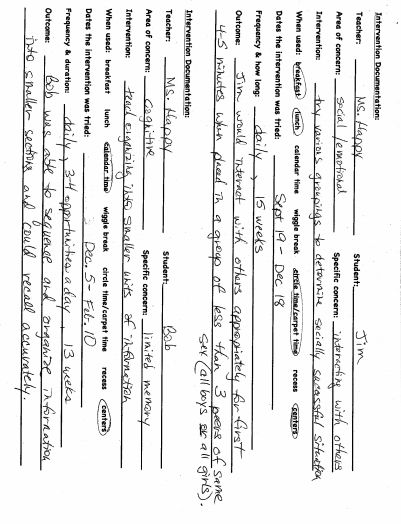 Intervention Documentation:
Teacher: Ms. Happy Student: Jim
Area of concern: social/emotional Specific concern: interacting with others
Intervention: try various groupings to determine socially successful situation
When used: breakfast lunch calendar time wiggle break circle time/carpet time recess centers
Dates the intervention was tried: Sept 19 - Dec 18
Frequency & how long: daily, 15 weeks
Outcome: Jim would interact with others appropriately for first
4-5 minutes when placed in a group of less than 3 peers of same
sex (all boys or all girls).
Intervention Documentation:
Teacher: Ms. Happy Student: Bob
Area of concern: Cognitive Specific concern: limited memory
Intervention: teach organizing into smaller units of information
When used: breakfast lunch calendar time wiggle break circle time/carpet time recess centers
Dates the intervention was tried: Dec. 5 - Feb. 10
Frequency & duration: daily, 3-4 opportunities a day, 13 weeks
Outcome: Bob was able to sequence and organize information
into smaller sections and could recall accurately.